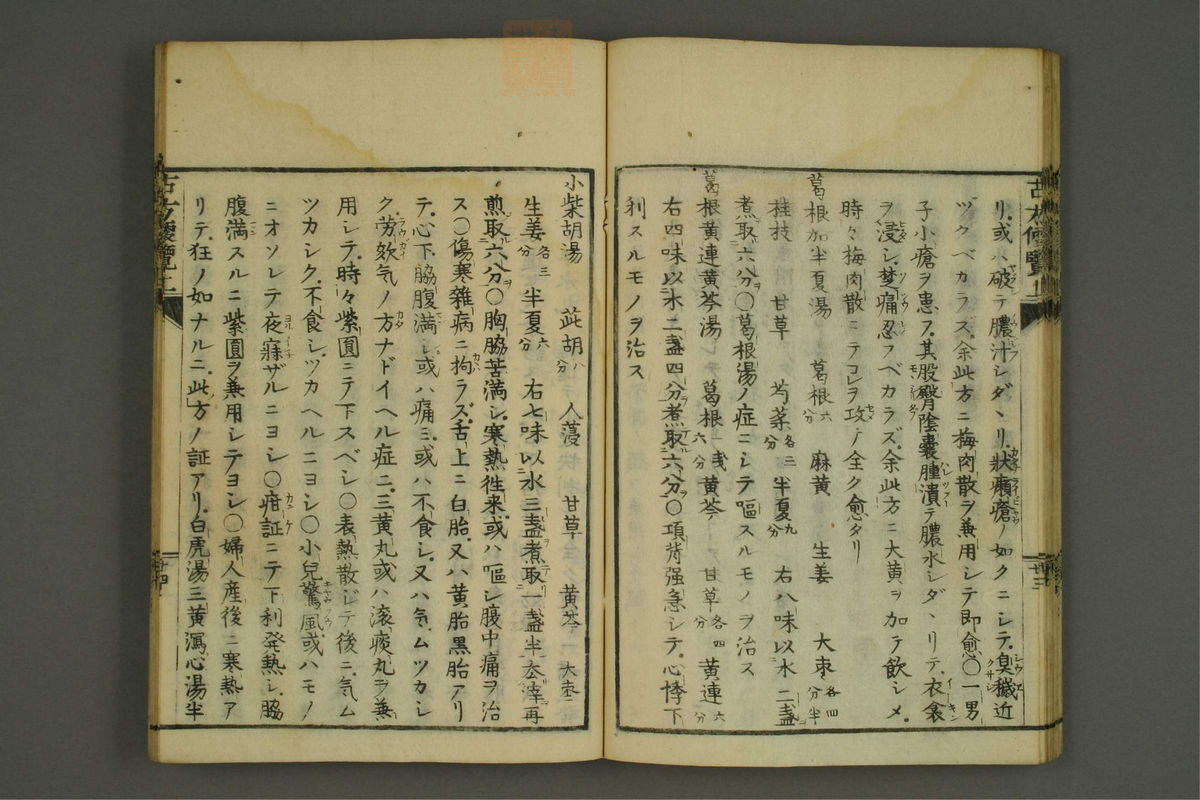 リ或ハ破テ膿汁シダヽリ狀癩瘡ノ如クニシテ臭穢近
ヅクベカラズ余此方ニ梅肉散ヲ兼用シテ即愈〇一男
子小瘡ヲ患フ其股臀陰嚢腫潰テ膿水シダヽリテ衣衾
ヲ浸シ疼痛忍ブベカラズ余此方ニ大黄ヲ加テ飲シメ
時々梅肉散ニテコレヲ攻テ全ク愈タリ
葛根加半夏湯 葛根六分 麻黄 生姜 大棗各四分半
桂枝 甘草 芍薬各三分 半夏九分 右八味以水二盞
煮取六八分〇葛根湯ノ症ニシテ嘔スルモノヲ治ス
葛根黄連黄芩湯 葛根一戔六分 黄芩 甘草各四分 黄連六分
右四味以水二盞四八分煮取六八分〇項背强急シテ心悸下
利スルモノヲ治ス
小柴胡湯 茈胡八分 人薓 甘草 黄芩 大棗
生姜各三分 半夏六分 右七味以水三盞煮取一盞半去滓再
煎取六八分〇胸脇苦満シ寒熱徃来或ハ嘔シ腹中痛ヲ治
ス〇傷寒雜病ニ拘ラズ舌上ニ白胎又ハ黄胎黒胎アリ
テ心下脇腹満シ或ハ痛ミ或ハ不食シ又ハ気ムツカシ
ク労欬気ノ方ナドイヘル症ニ三黄丸或ハ滚痰丸ヲ兼
用シテ時々紫圓ニテ下スベシ〇表熱散ジテ後ニ気ム
ツカシク不食シツカヘルニヨシ〇小兒驚風或ハモノ
ニオソレテ夜寐ザルニヨシ〇疳証ニテ下利発熱シ脇
腹満スルニ紫圓ヲ兼用シテヨシ〇婦人産後ニ寒熱ア
リテ狂ノ如ナルニ此方ノ証アリ白虎湯三黄瀉心湯半